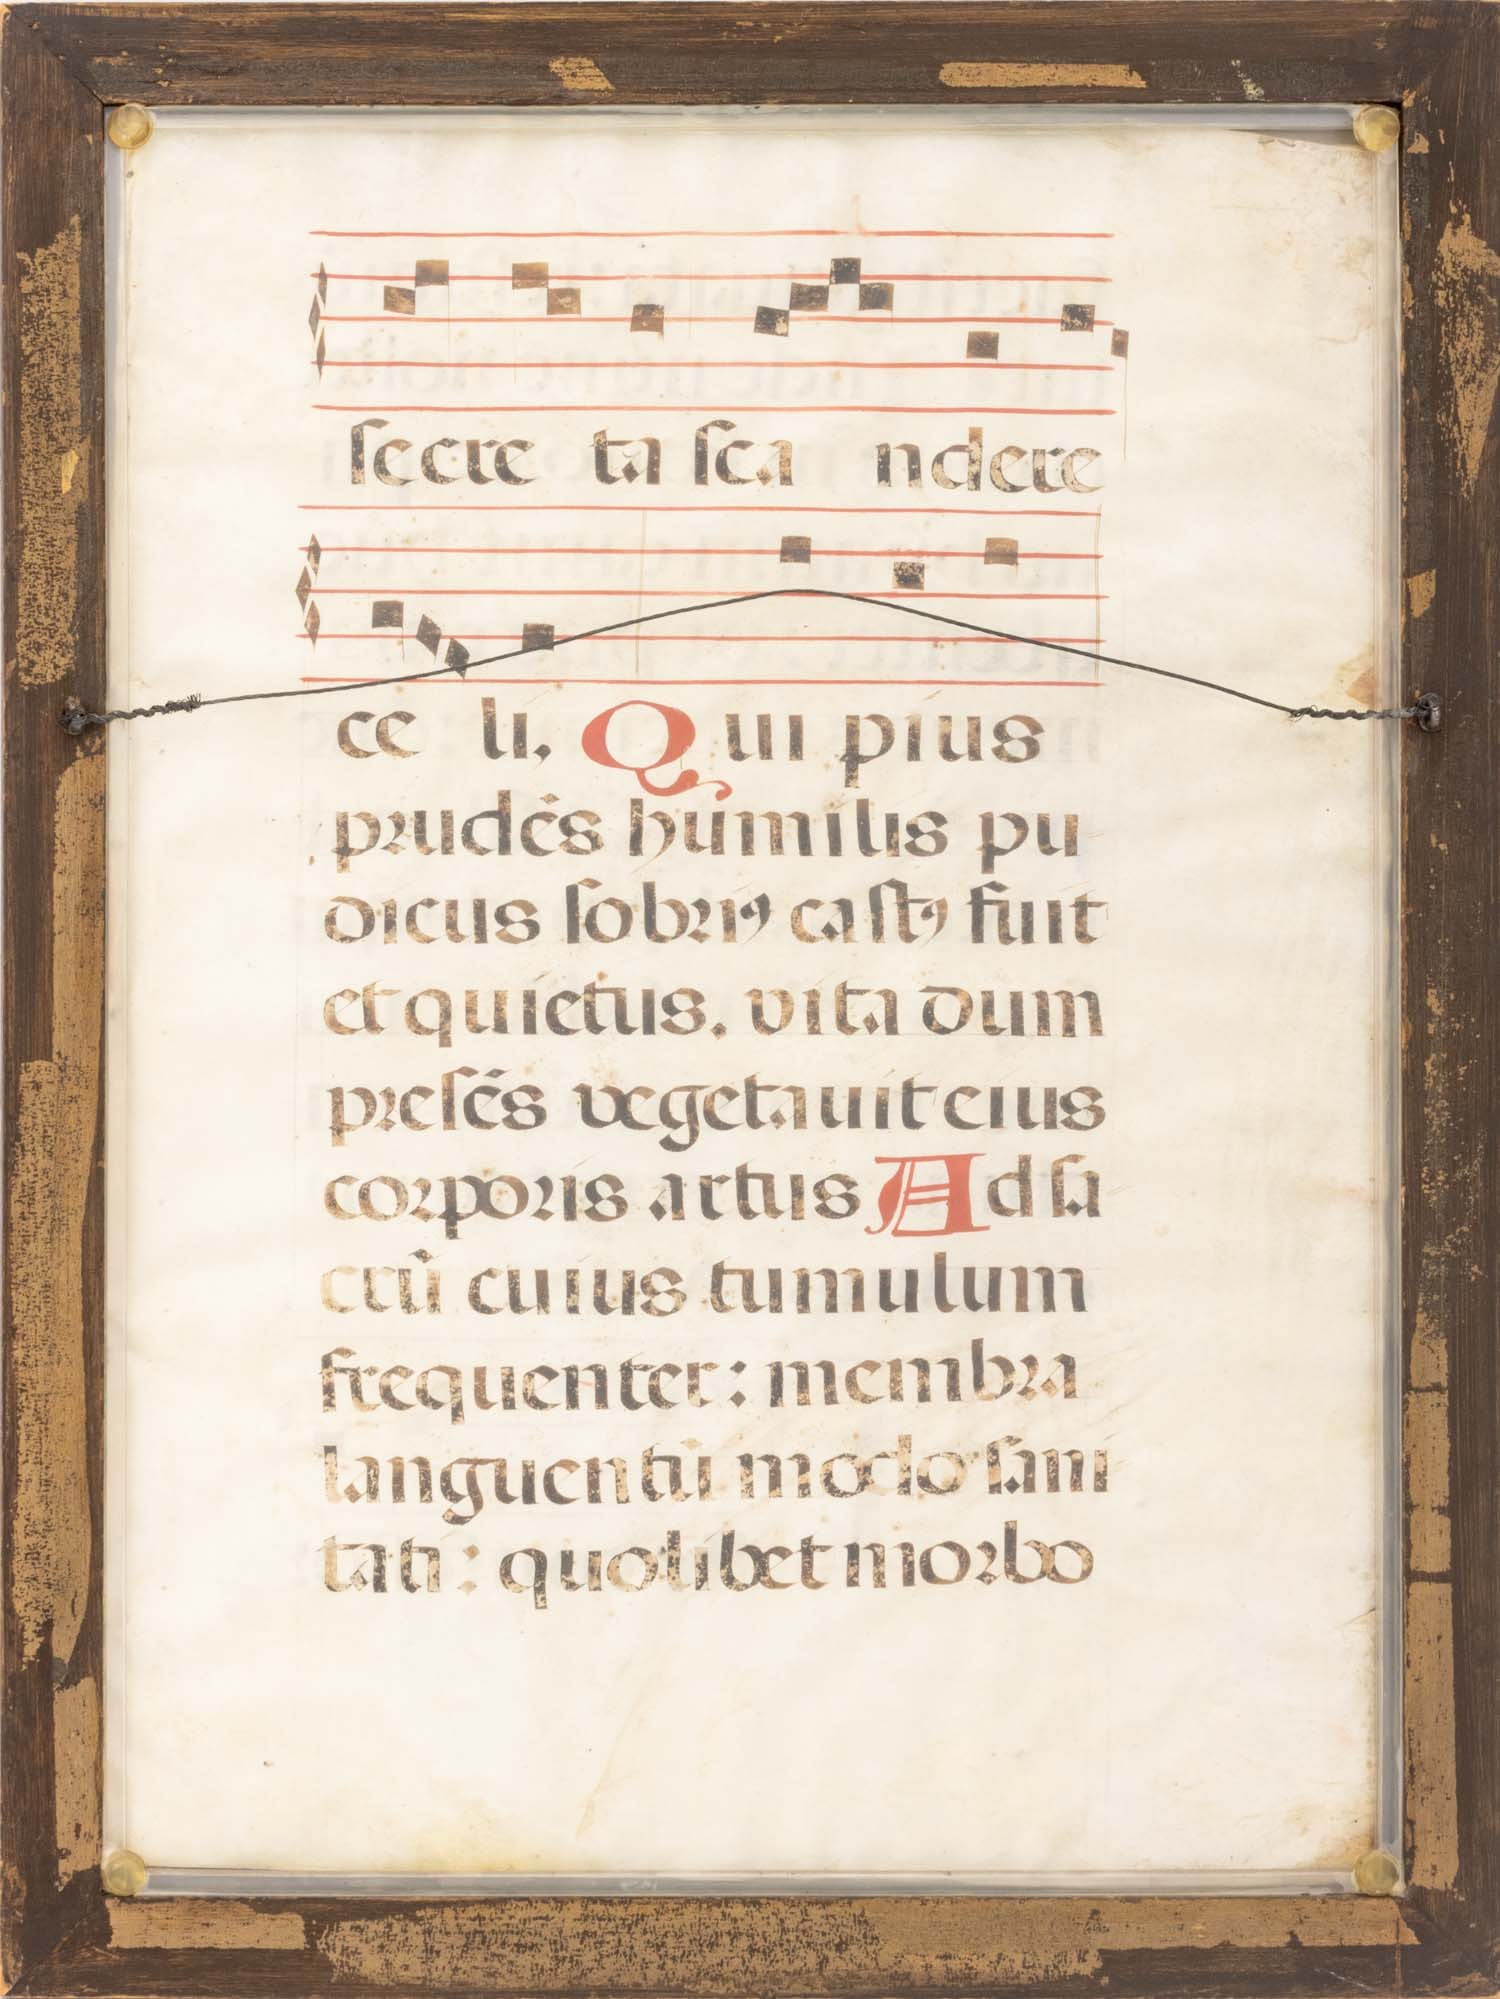 secre ta sca ndere
ce li, Qui pius
prudēs humilis pu
dicus sobriꝰ castꝰ fuit
et quietus. vita dum
presēs vegetavit eius
corporis artus Ad sa
crū cuius tumulum
frequenter: membra
languentū modo sani
tati: quolibet morbo